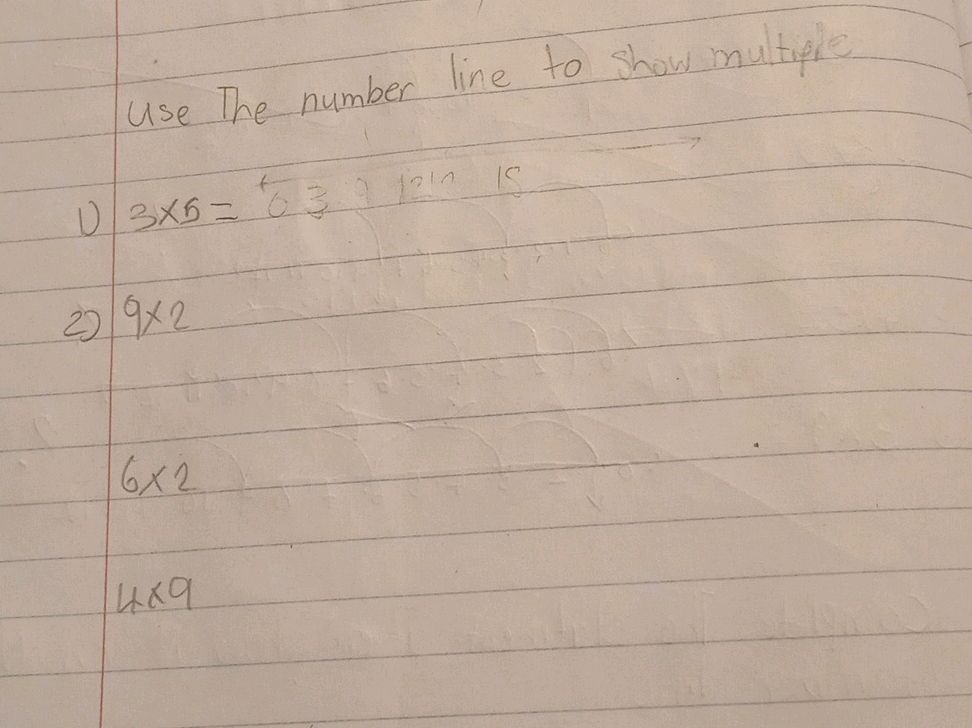 Use The number line to show multiple
1) 3x5 = 0 3 9 12 15
2) 9x2
6x2
4x9